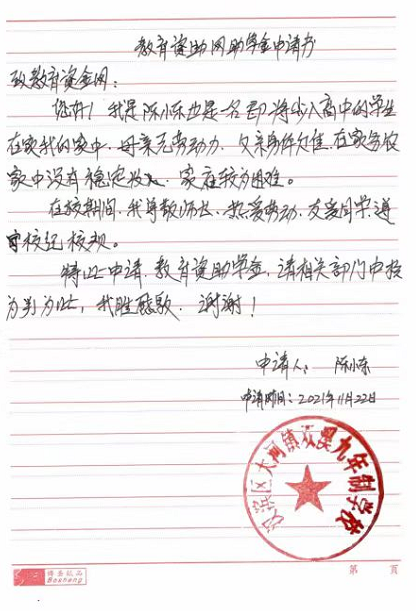 教育资助网助学金申请书
致教育资金网：
您好！我是陈小东也是一名即将步入高中的学生
在家我的家中，母亲无劳动力，父亲身体欠佳，在家务农
家中没有稳定收入，家庭较为困难。
在校期间，我尊敬师长，热爱劳动，友爱同学遵
守校纪校规。
特此申请，教育资助学金，请相关部门审核
为此，我 谢谢！
申请人：陈小东
申请时间：2021年11月22日
汉滨区大河镇 溪九年制学校
博盛纸品
Bosheng
第 页